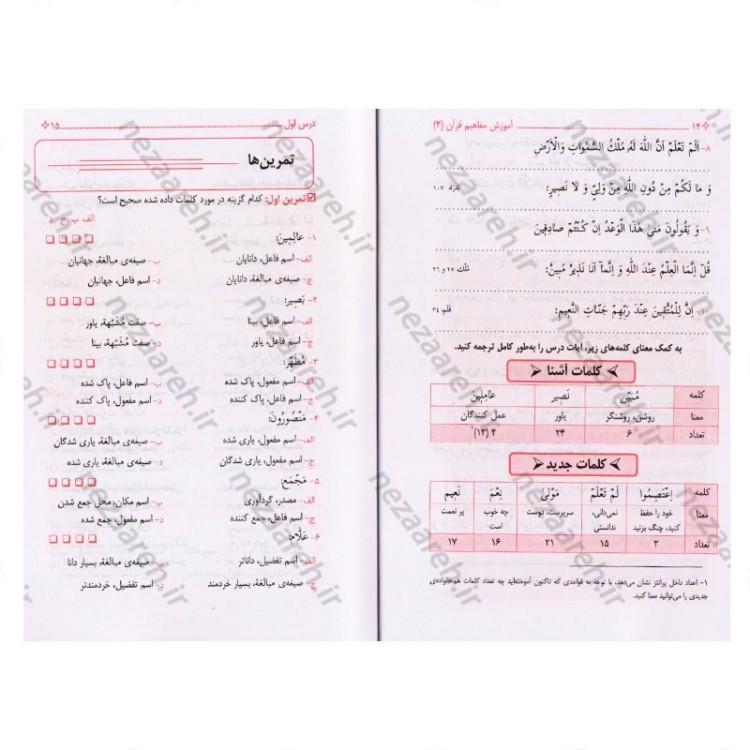 ۱۴ آموزش مفاهیم قرآن (۳)
۸- اَلَمْ تَعْلَمْ اَنَّ اللّٰهَ لَهُ مُلْكُ السَّمٰوَاتِ وَالْاَرْضِ
وَ ما لَكُمْ مِنْ دُونِ اللّٰهِ مِنْ وَلِيٍّ وَ لا نَصِيرٍ: بقره ۱۰۷
۹- وَ يَقُولُونَ مَتىٰ هٰذَا الْوَعْدُ اِنْ كُنْتُمْ صادِقِينَ
قُلْ اِنَّمَا الْعِلْمُ عِنْدَ اللّٰهِ وَ اِنَّما اَنَا نَذِيرٌ مُبِينٌ: مُلک ۲۵ و ۲۶
۱۰- اِنَّ لِلْمُتَّقِينَ عِنْدَ رَبِّهِمْ جَنّاتِ النَّعِيمِ: قلم ۳۴
به کمک معنای کلمه‌های زیر، آیات درس را به‌طور کامل ترجمه کنید.
کلمات آشنا
کلمه مُبِين نَصِير عامِلِينَ
معنا روشن، روشنگر یاور عمل کنندگان
تعداد ۶ ۲۴ ۴ (۱۳)
کلمات جدید
کلمه اِعْتَصِمُوا لَمْ تَعْلَمْ مَوْلىٰ نِعْمَ نَعِيم
معنا خود را حفظ کنید، چنگ بزنید نمی‌دانی، ندانستی سرپرست، دوست چه خوب است پر نعمت
تعداد ۲ ۱۵ ۲۱ ۱۶ ۱۷
۱- اعداد داخل پرانتز نشان می‌دهد، با توجه به قواعدی که تاکنون آموخته‌اید چه تعداد کلمات هم‌خانواده‌ی
جدیدی را می‌توانید معنا کنید.
درس اول ۱۵
تمرین‌ها
تمرین اول: کدام گزینه در مورد کلمات داده شده صحیح است؟
الف ب ج د
۱- عالِمِينَ:
الف- اسم فاعل، دانایان ب- صیغه‌ی مبالغة، جهانیان
ج- صیغه‌ی مبالغة، دانایان د- اسم فاعل، جهانیان
۲- بَصِير:
الف- اسم فاعل، بینا ب- صفت مُشَبّهة، یاور
ج- اسم فاعل، یاور د- صفت مُشَبّهة، بینا
۳- مُطَهَّر:
الف- اسم مفعول، پاک شده ب- اسم فاعل، پاک شده
ج- اسم فاعل، پاک کننده د- اسم مفعول، پاک کننده
۴- مَنْصُورُونَ:
الف- اسم مفعول، یاری شده ب- صیغه‌ی مبالغة، یاری شدگان
ج- اسم مفعول، یاری شدگان د- صیغه‌ی مبالغة، یاری شده
۵- مَجْمَع:
الف- مصدر، گردآوری ب- اسم مکان، محل جمع شدن
ج- اسم فاعل، جمع کننده د- اسم مفعول، جمع شده
۶- عَلّام:
الف- اسم تفضیل، داناتر ب- صیغه‌ی مبالغة، بسیار دانا
ج- صیغه‌ی مبالغة، بسیار خردمند د- اسم تفضیل، خردمندتر
nezaareh.ir